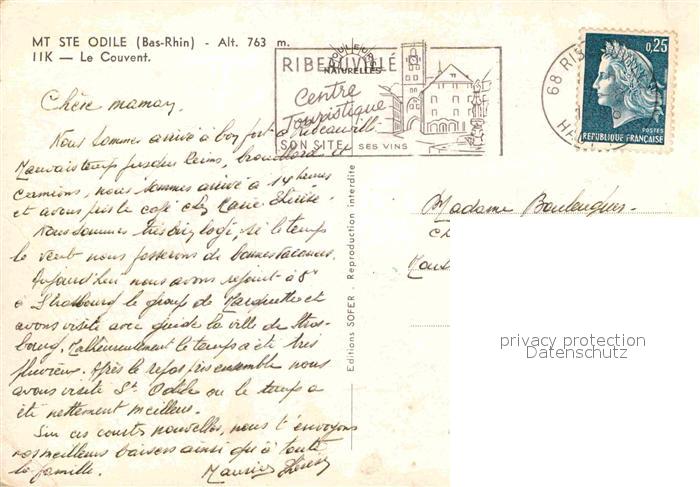 MT STE ODILE (Bas-Rhin) - Alt. 763 m.
11K — Le Couvent.
COULEURS
NATURELLES
RIBEAUVILLÉ
Centre
Touristique
SON SITE, SES VINS
68 RIB
HAUT
0,25
POSTES
REPUBLIQUE FRANÇAISE
Chère maman,
Nous sommes arrivé à bon port à Ribeauvillé
Mauvais temps jusque Reims, brouillard et
camions, nous sommes arrivé à 14 heures
et avons pris le café chez Marie Thérèse.
Nous sommes très bien logé, si le temps
le veut nous passerons de bonnes vacances.
Aujourd'hui nous avons rejoint à 8h
à Strasbourg le groupe de Marguerite et
avons visité avec guide la ville de Stras-
bourg. Malheureusement le temps a été très
pluvieux. Après le repas pris ensemble nous
avons visité St Odile ou le temps a
été nettement meilleur.
Sur ces courtes nouvelles, nous t'envoyons
nos meilleurs baisers ainsi qu'à toute
la famille.
Maurice Thérèse
Editions SOFER - Reproduction interdite
Madame
privacy protection
Datenschutz